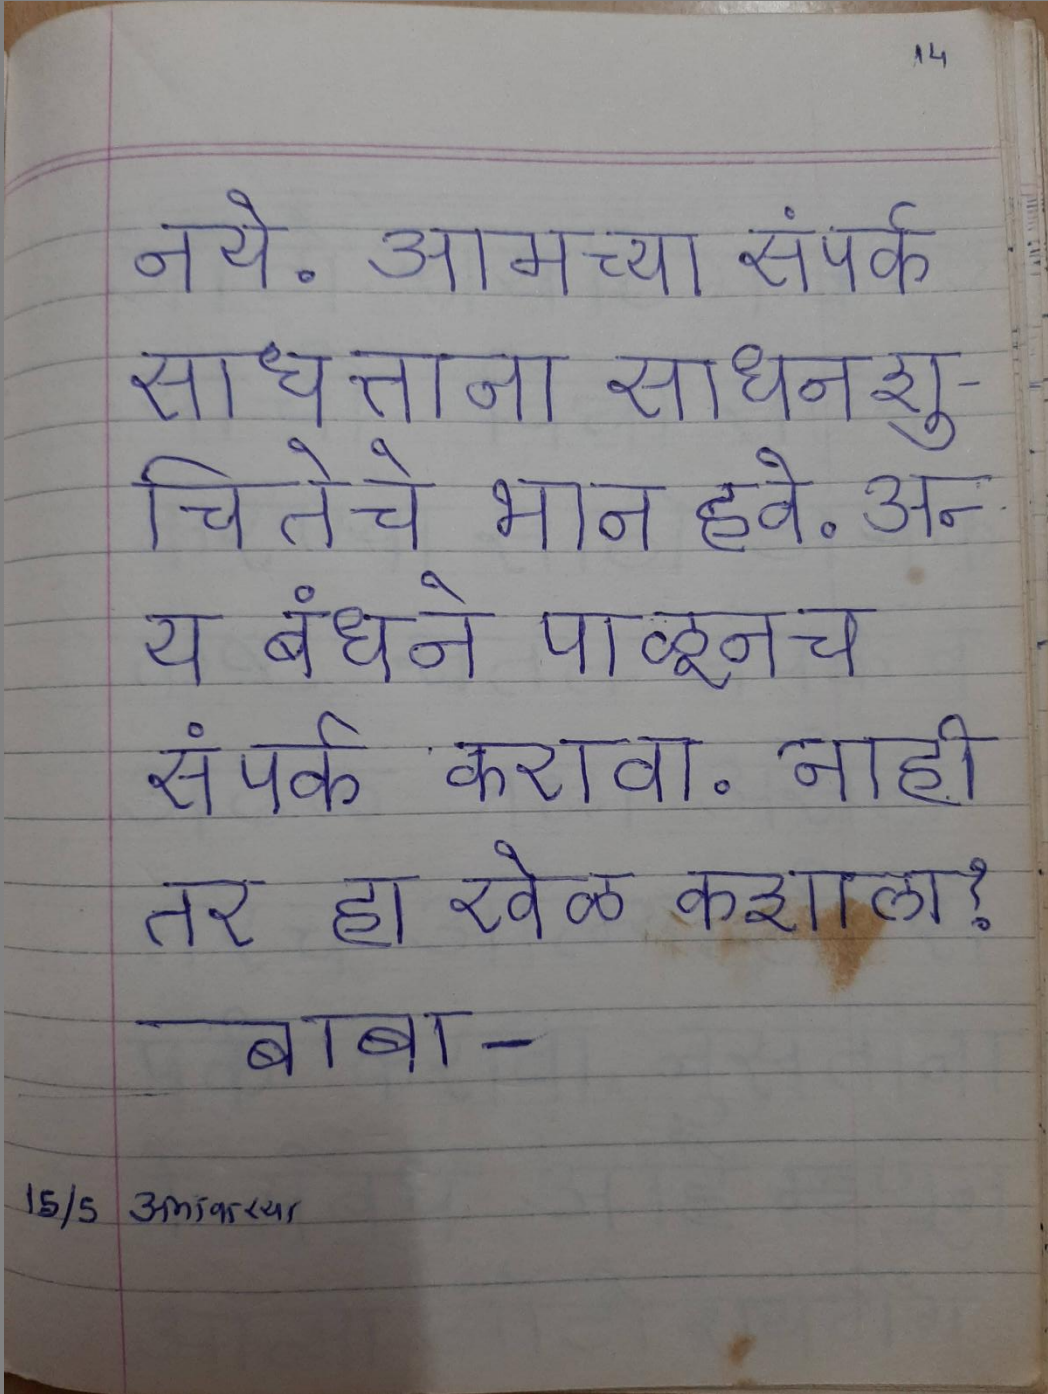 14
नये. आमच्या संपर्क
साधत्ताना साधनशु-
चितेचे भान हवे. अन-
य बंधने पाळूनच
संपर्क करावा. नाही
तर हा खेळ कशाला?
बाबा-
15/5 अमावस्या